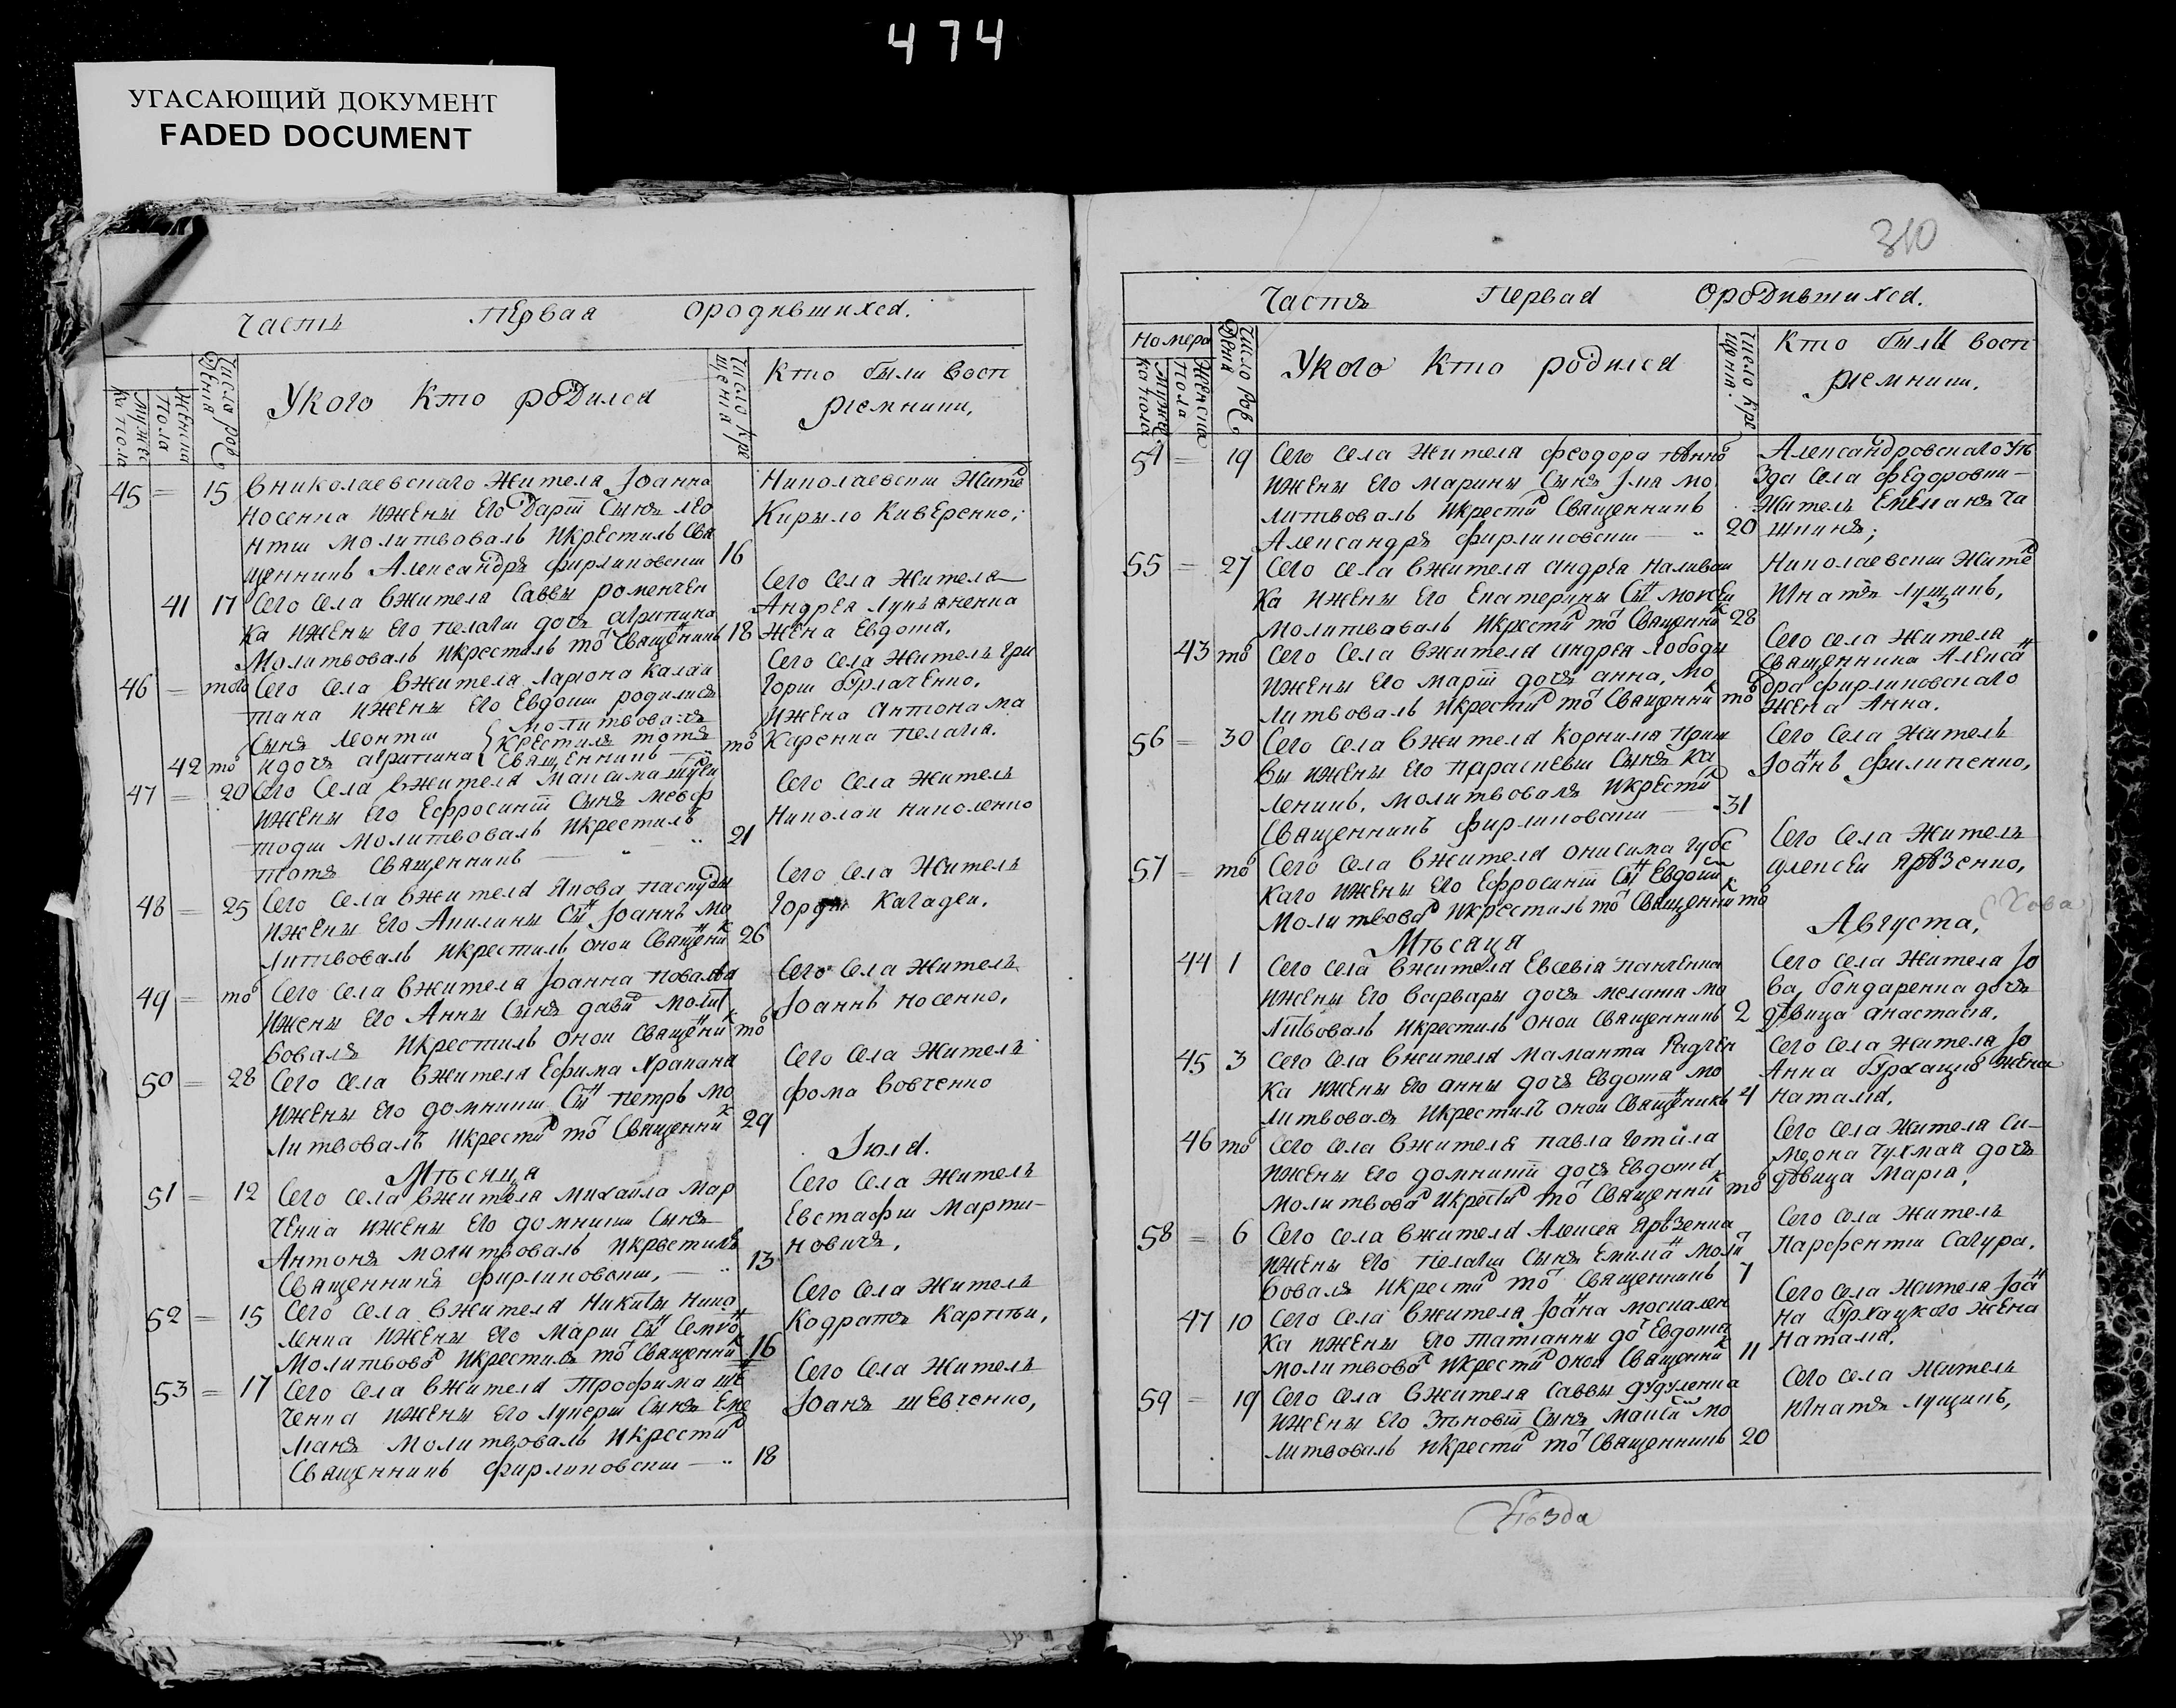 474
УГАСАЮЩИЙ ДОКУМЕНТ
FADED DOCUMENT
Часть Первая ородившихся.
Число рож
дения
Женска
Пола
Мужес
ка пола
Укого Кто родился
Число кре
щения
Кто были восп
риемники,
45 = 15 Вниколаевскаго Жителя Иоанна
Носенка ижены Его Дарии Сынъ лео
нтии молитвовалъ Икрестилъ Свя
щенникъ Александръ фирликовский 16
Николаевский Жите
Кирыло Кивѣренко,
41 17 Сего Села вжителя Саввы роменчен
ка ижены Его пелагии дочь агрипина
Молитвовалъ Икрестилъ то Священникъ 18
Сего Села Жителя
Андрея Лукъяненка
Жена Евдотя,
46 = того Сего Села вжителя Лариона Калаи
тана ижены Его Евдокии родилися
Сынъ Леонтии { Молитвовалъ
42 то идочь агрипина { Крестилъ тотъ Священникъ то
Сего Села Житель гри
горий бурлаченко,
ижена антона ма
каренка пелагия.
47 = 20 Сего Села вжителя Максима
ижены Его Ефросинии Сынъ меѳоф
тодии молитвовалъ Икрестилъ
тотъ Священникъ — 21
Сего Села Житель
Николаи николенко
48 = 25 Сего Села вжителя Якова паскуды
ижены Его Акилины Сы Иоаннъ мо
литвовалъ икрестилъ онои Священик 26
Сего Села Житель
Гордий Кагадеи.
49 = то Сего Села вжителя Иоанна
ижены Его Анны Сынъ дави молит
вовалъ икрестилъ онои Священик то
Сего Села Житель
Иоаннъ носенко,
50 = 28 Сего Села вжителя Ефима Храпана
ижены Его домникии Сы петръ мо
литвовалъ икрести то Священник 29
Сего Села Житель
фома вовченко
Мѣсяца Июля.
51 = 12 Сего Села вжителя михаила мар
ченка ижены Его домникии Сынъ
Антонъ молитвовалъ икрестилъ
Священникъ фирликовский, — 13
Сего Села Житель
Евстафии Марти-
новичъ,
52 = 15 Сего Села вжителя Никиты Нико
ленка ижены Его Марии Сы Семио
Молитвова икрестилъ то Священник 16
Сего Села Житель
Кодратъ Карпѣи,
53 = 17 Сего Села вжителя Трофима ше
ченка ижены Его Лукерии Сынъ Еме
лианъ молитвовалъ икрести
Священникъ фирликовский — 18
Сего Села Житель
Иоанъ шевченко,
310
Часть Первая ородившихся.
Номера
Мужес
ка пола
Женска
Пола
Число рож
дения
Укого Кто родился
Число кре
щения.
Кто были восп
риемники,
54 = 19 Сего Села Жителя феодора
ижены Его марины Сынъ Илиа мо
литвовалъ Икрести Священникъ
Александръ фирликовский — 20
Александровскаго уѣ
зда Села федоровки —
Житель Емелианъ ча
шкинъ;
55 = 27 Сего Села вжителя андрея Наливаи
ка ижены Его Екатерины Сы моисеи
Молитвовалъ Икрести то Священник 28
Николаевский Жите
Игнатъ лущикъ,
43 то Сего Села вжителя андрея Лободы
ижены Его марии дочь анна, мо
литвовалъ Икрести то Священник то
Сего Села Жителя
Священника Алекса
дра фирликовскаго
Жена Анна.
56 = 30 Сего Села вжителя Корнилия
вы ижены Его параскевии Сынъ Ка
леникъ, молитвовалъ Икрести
Священникъ фирликовский — 31
Сего Села Житель
Иоанъ филипенко,
57 = то Сего Села вжителя онисима губс
каго ижены Его Ефросинии Сы Евдоки
Молитвова Икрестилъ то Священник то
Сего Села Житель
алексеи ярѣзенко,
Мѣсяца Августа,
44 1 Сего Села вжителя Евсевия панченка
ижены Его варвары дочь мелания мо
литвовалъ икрестилъ онои Священникъ 2
Сего Села Жителя Ио
ва, бондаренка дочь
дѣвица анастасия,
45 3 Сего Села вжителя маманта Радчен
ка ижены Его анны дочь Евдотя мо
литвовалъ икрестилъ онои Священикъ 4
Сего Села Жителя Ио
анна бурхацкг жена
Наталия,
46 то Сего Села вжителя павла
ижены Его домникии дочь Евдотя
Молитвова Икрести то Священник то
Сего Села Жителя Си-
меона Чухмая дочь
дѣвица Мария,
58 = 6 Сего Села вжителя Алексея ярѣзенка
ижены Его пелагии Сынъ Емилиа моли
вовалъ икрести то Священникъ 7
Сего Села Житель
Парфентии Сагура,
47 10 Сего Села вжителя Иоана москален
ка ижены Его татианны до Евдотя
молитвова икрести онои Священик 11
Сего Села Жителя Иоа
на бурхацкого жена
Наталия,
59 = 19 Сего Села вжителя Саввы дудуленка
ижены Его Зѣновии Сынъ Макси мо
литвовалъ икрести то Священникъ 20
Сего Села Житель
Игнатъ лущикъ,